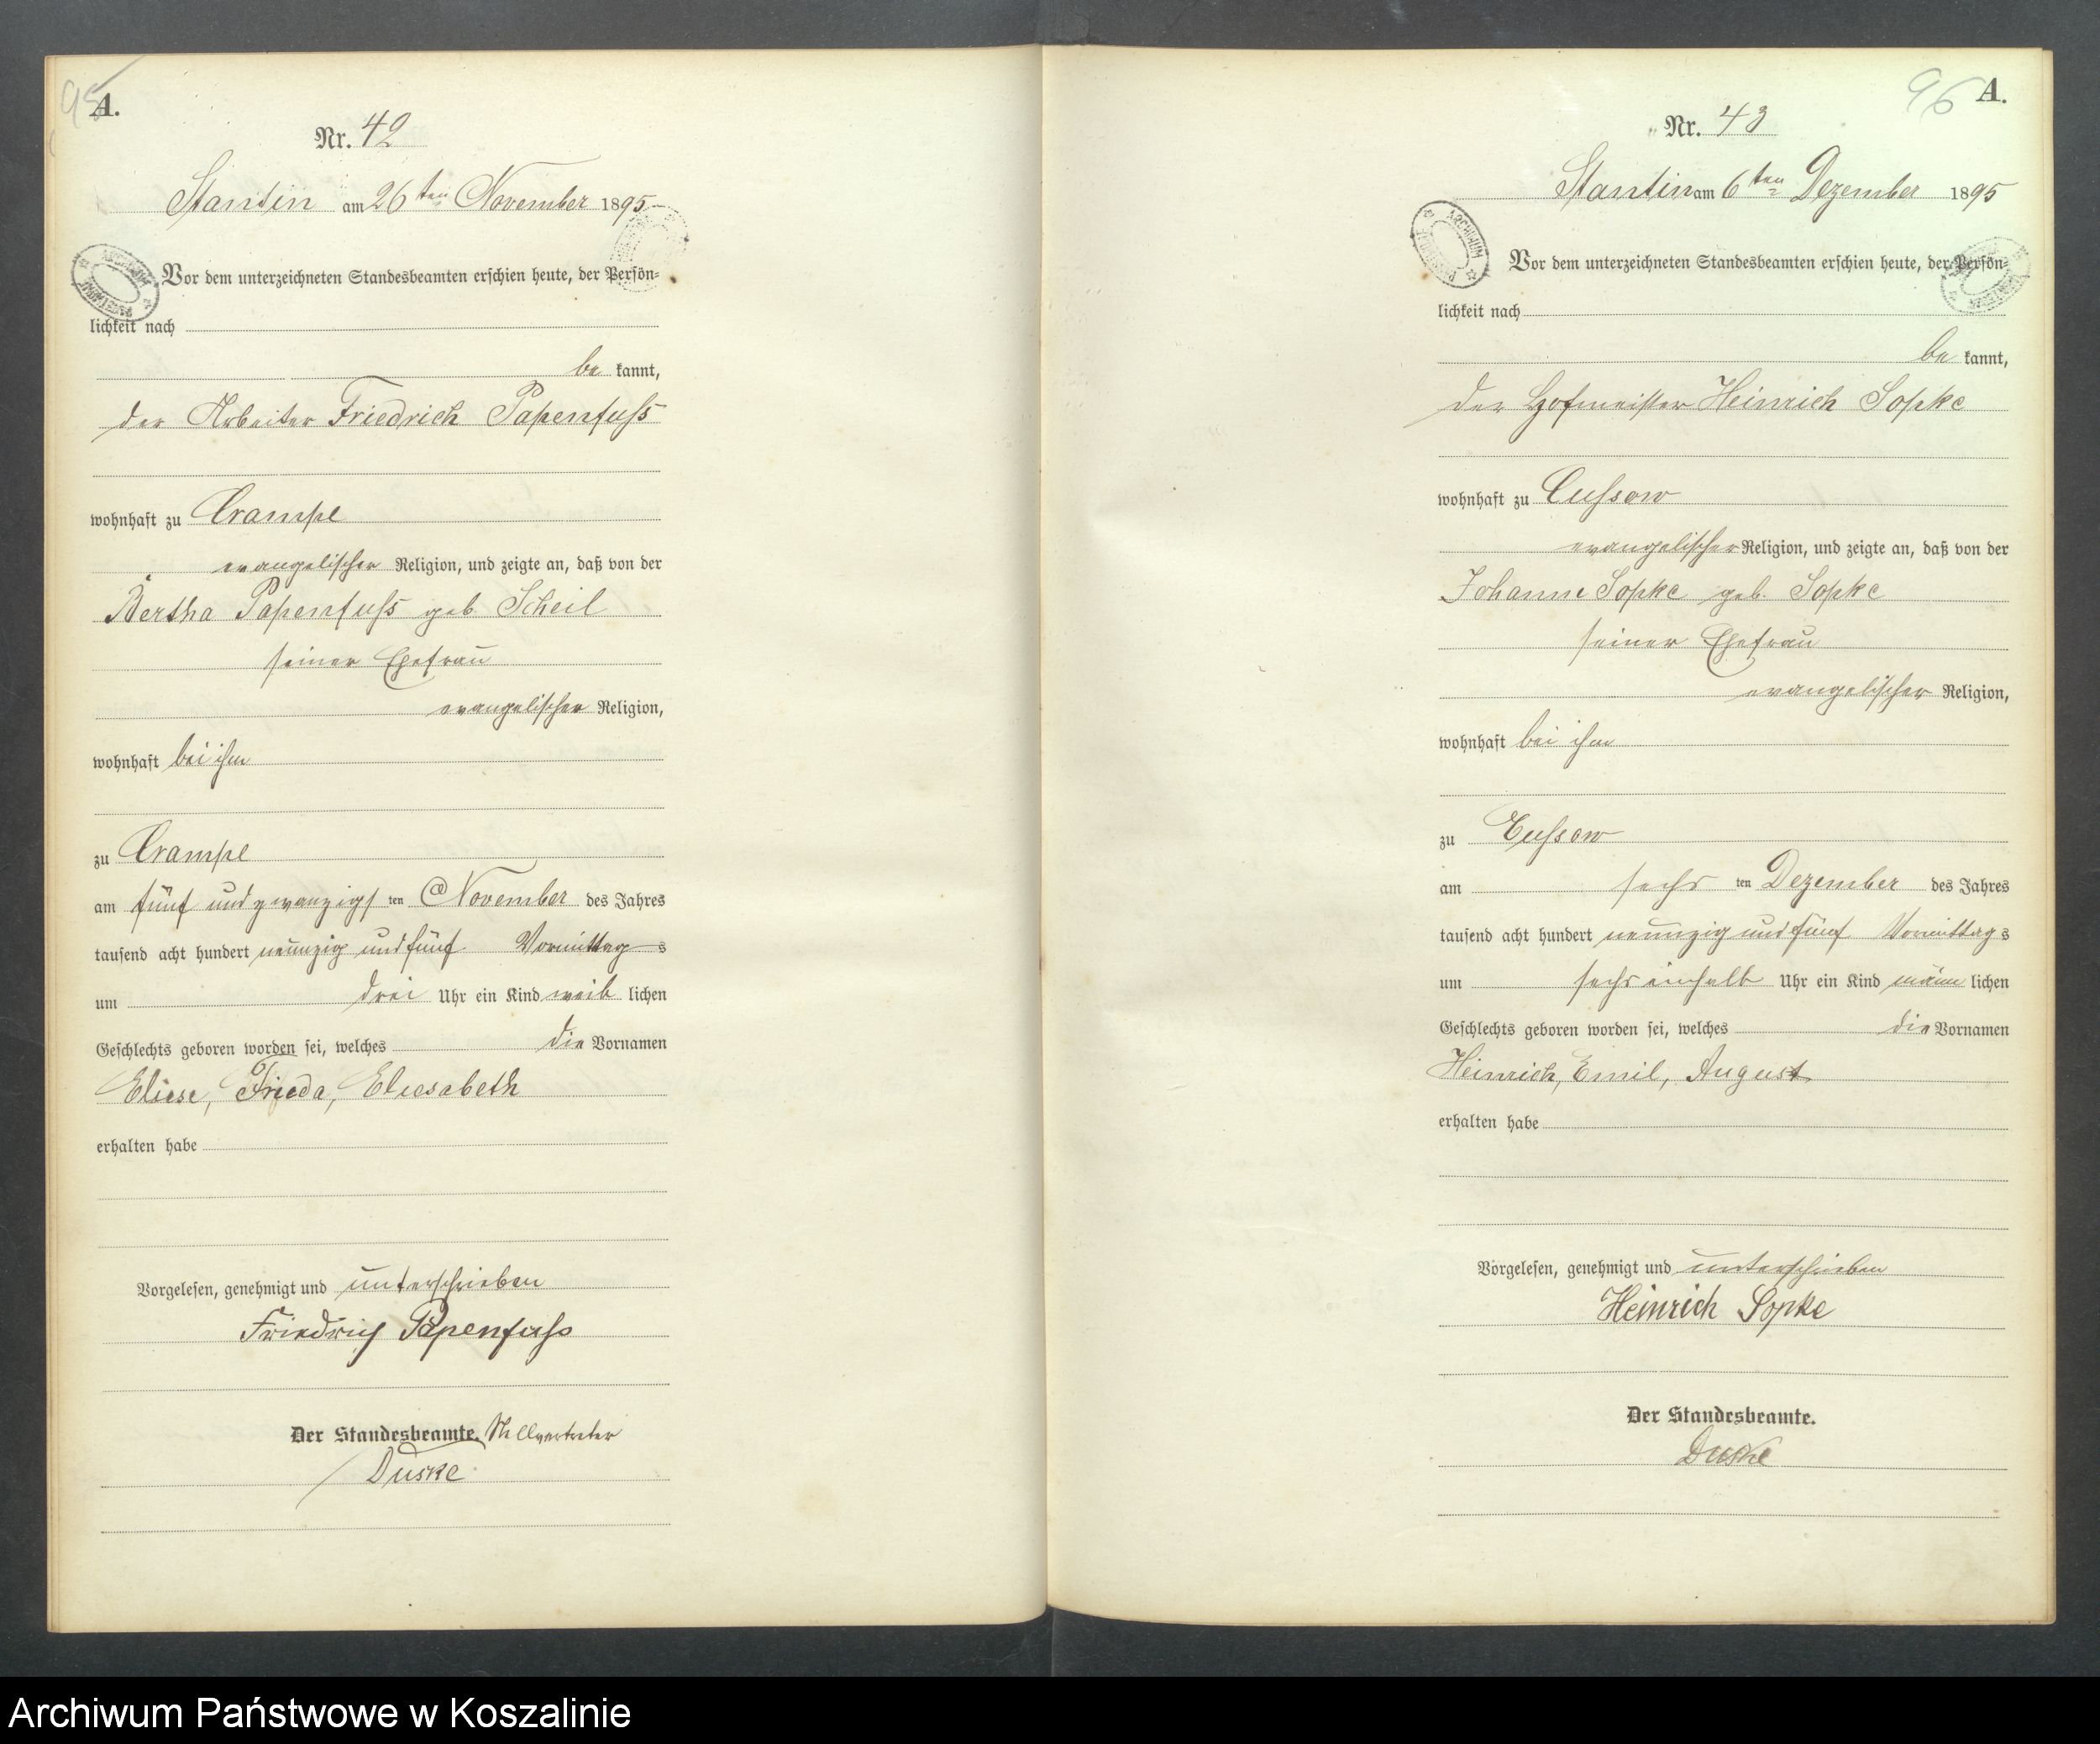 95
A.
Nr. 42
Stantin am 26ten November 1895
Vor dem unterzeichneten Standesbeamten erschien heute, der Persön-
lichkeit nach
be kannt,
der Arbeiter Friedrich Papenfuß
wohnhaft zu Crampe
evangelischer Religion, und zeigte an, daß von der
Bertha Papenfuß geb Scheil
seiner Ehefrau
evangelischer Religion,
wohnhaft bei ihm
zu Crampe
am fünf und zwanzigs ten November des Jahres
tausend acht hundert neunzig und fünf Vormittag s
um drei Uhr ein Kind weib lichen
Geschlechts geboren worden sei, welches die Vornamen
Eliese, Frieda, Eliesabeth
erhalten habe
Vorgelesen, genehmigt und unterschrieben
Friedrich Papenfuß
Der Standesbeamte. Stellvertreter
Duske
96 A.
Nr. 43
Stantin am 6ten Dezember 1895
ARCHIWUM
Vor dem unterzeichneten Standesbeamten erschien heute, der Persön-
lichkeit nach
be kannt,
der Hofmeister Heinrich Sopke
wohnhaft zu Cussow
evangelischer Religion, und zeigte an, daß von der
Johanne Sopke geb. Sopke
seiner Ehefrau
evangelischer Religion,
wohnhaft bei ihm
zu Cussow
am sechs ten Dezember des Jahres
tausend acht hundert neunzig und fünf Vormittag s
um sechs einhalb Uhr ein Kind männ lichen
Geschlechts geboren worden sei, welches die Vornamen
Heinrich, Emil, August
erhalten habe
Vorgelesen, genehmigt und unterschrieben
Heinrich Sopke
Der Standesbeamte.
Duske
Archiwum Państwowe w Koszalinie